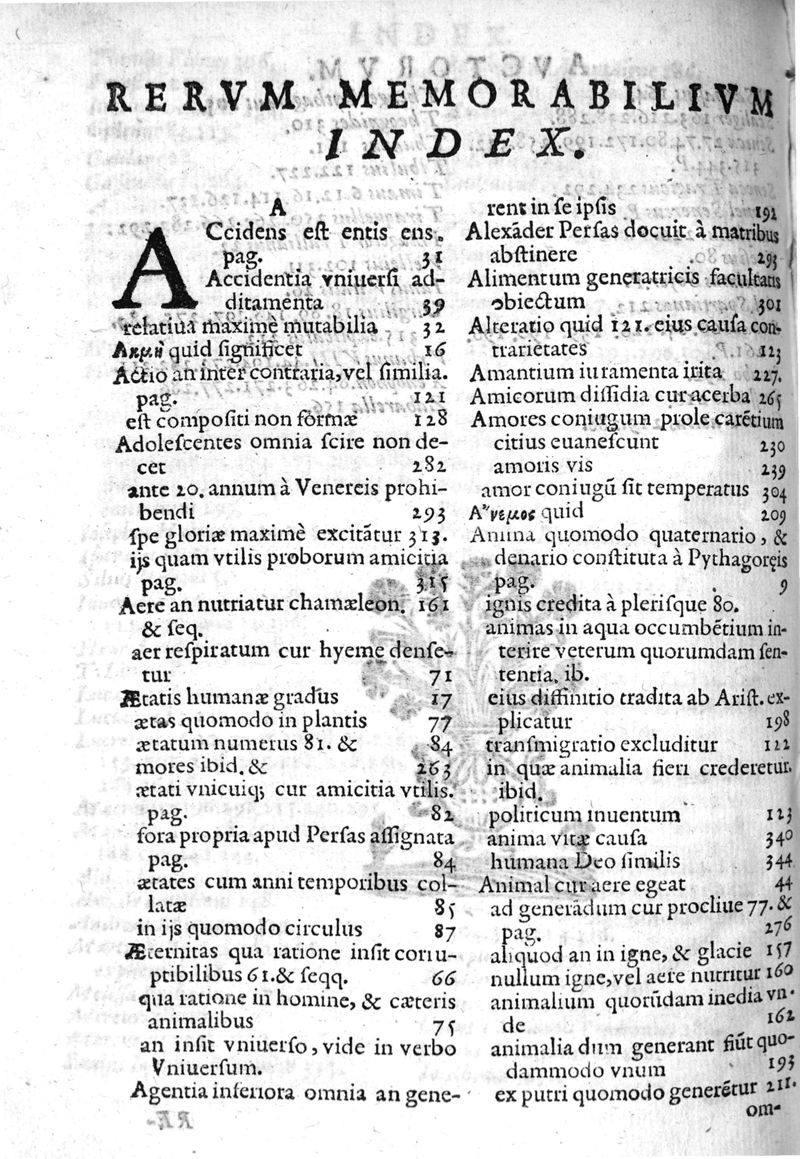 RERVM MEMORABILIVM
INDEX.
A
ACcidens eſt entis ens.
pag. 31
Accidentia vniuerſi ad-
ditamenta 39
relatiua maximè mutabilia 32
Ακμὴ quid ſignificet 16
Actio an inter contraria, vel ſimilia.
pag. 121
eſt compoſiti non formæ 128
Adoleſcentes omnia ſcire non de-
cet 282
ante 20. annum à Venereis prohi-
bendi 293
ſpe gloriæ maximè excitātur 313.
ijs quam vtilis proborum amicitia
pag. 315
Aere an nutriatur chamæleon. 161
& ſeq.
aer reſpiratum cur hyeme denſe-
tur 71
Ætatis humanæ gradus 17
ætas quomodo in plantis 77
ætatum numerus 81. & 84
mores ibid. & 263
ætati vnicuiq; cur amicitia vtilis.
pag. 82
fora propria apud Perſas aſſignata
pag. 84
ætates cum anni temporibus col-
latæ 85
in ijs quomodo circulus 87
Æternitas qua ratione inſit corru-
ptibilibus 61. & ſeqq. 66
qua ratione in homine, & cæteris
animalibus 75
an inſit vniuerſo, vide in verbo
Vniuerſum.
Agentia inferiora omnia an gene-
rent in ſe ipſis 192
Alexāder Perſas docuit à matribus
abſtinere 293
Alimentum generatricis facultatis
obiectum 301
Alteratio quid 121. eius cauſa con-
trarietates 123
Amantium iuramenta irita 227.
Amicorum diſſidia cur acerba 265
Amores coniugum prole carētium
citius euaneſcunt 230
amoris vis 239
amor coniugū ſit temperatus 304
Α῎νεμος quid 209
Anima quomodo quaternario, &
denario conſtituta à Pythagoreis
pag. 9
ignis credita à pleriſque 80.
animas in aqua occumbētium in-
terire veterum quorumdam ſen-
tentia, ib.
eius diffinitio tradita ab Ariſt. ex-
plicatur 198
tranſmigratio excluditur 122
in quæ animalia fieri crederetur.
ibid.
politicum inuentum 123
anima vitæ cauſa 340
humana Deo ſimilis 344
Animal cur aere egeat 44
ad generādum cur procliue 77. &
pag. 276
aliquod an in igne, & glacie 157
nullum igne, vel aere nutritur 160
animalium quorūdam inedia vn-
de 162
animalia dum generant fiūt quo-
dammodo vnum 193
ex putri quomodo generētur 211.
om-